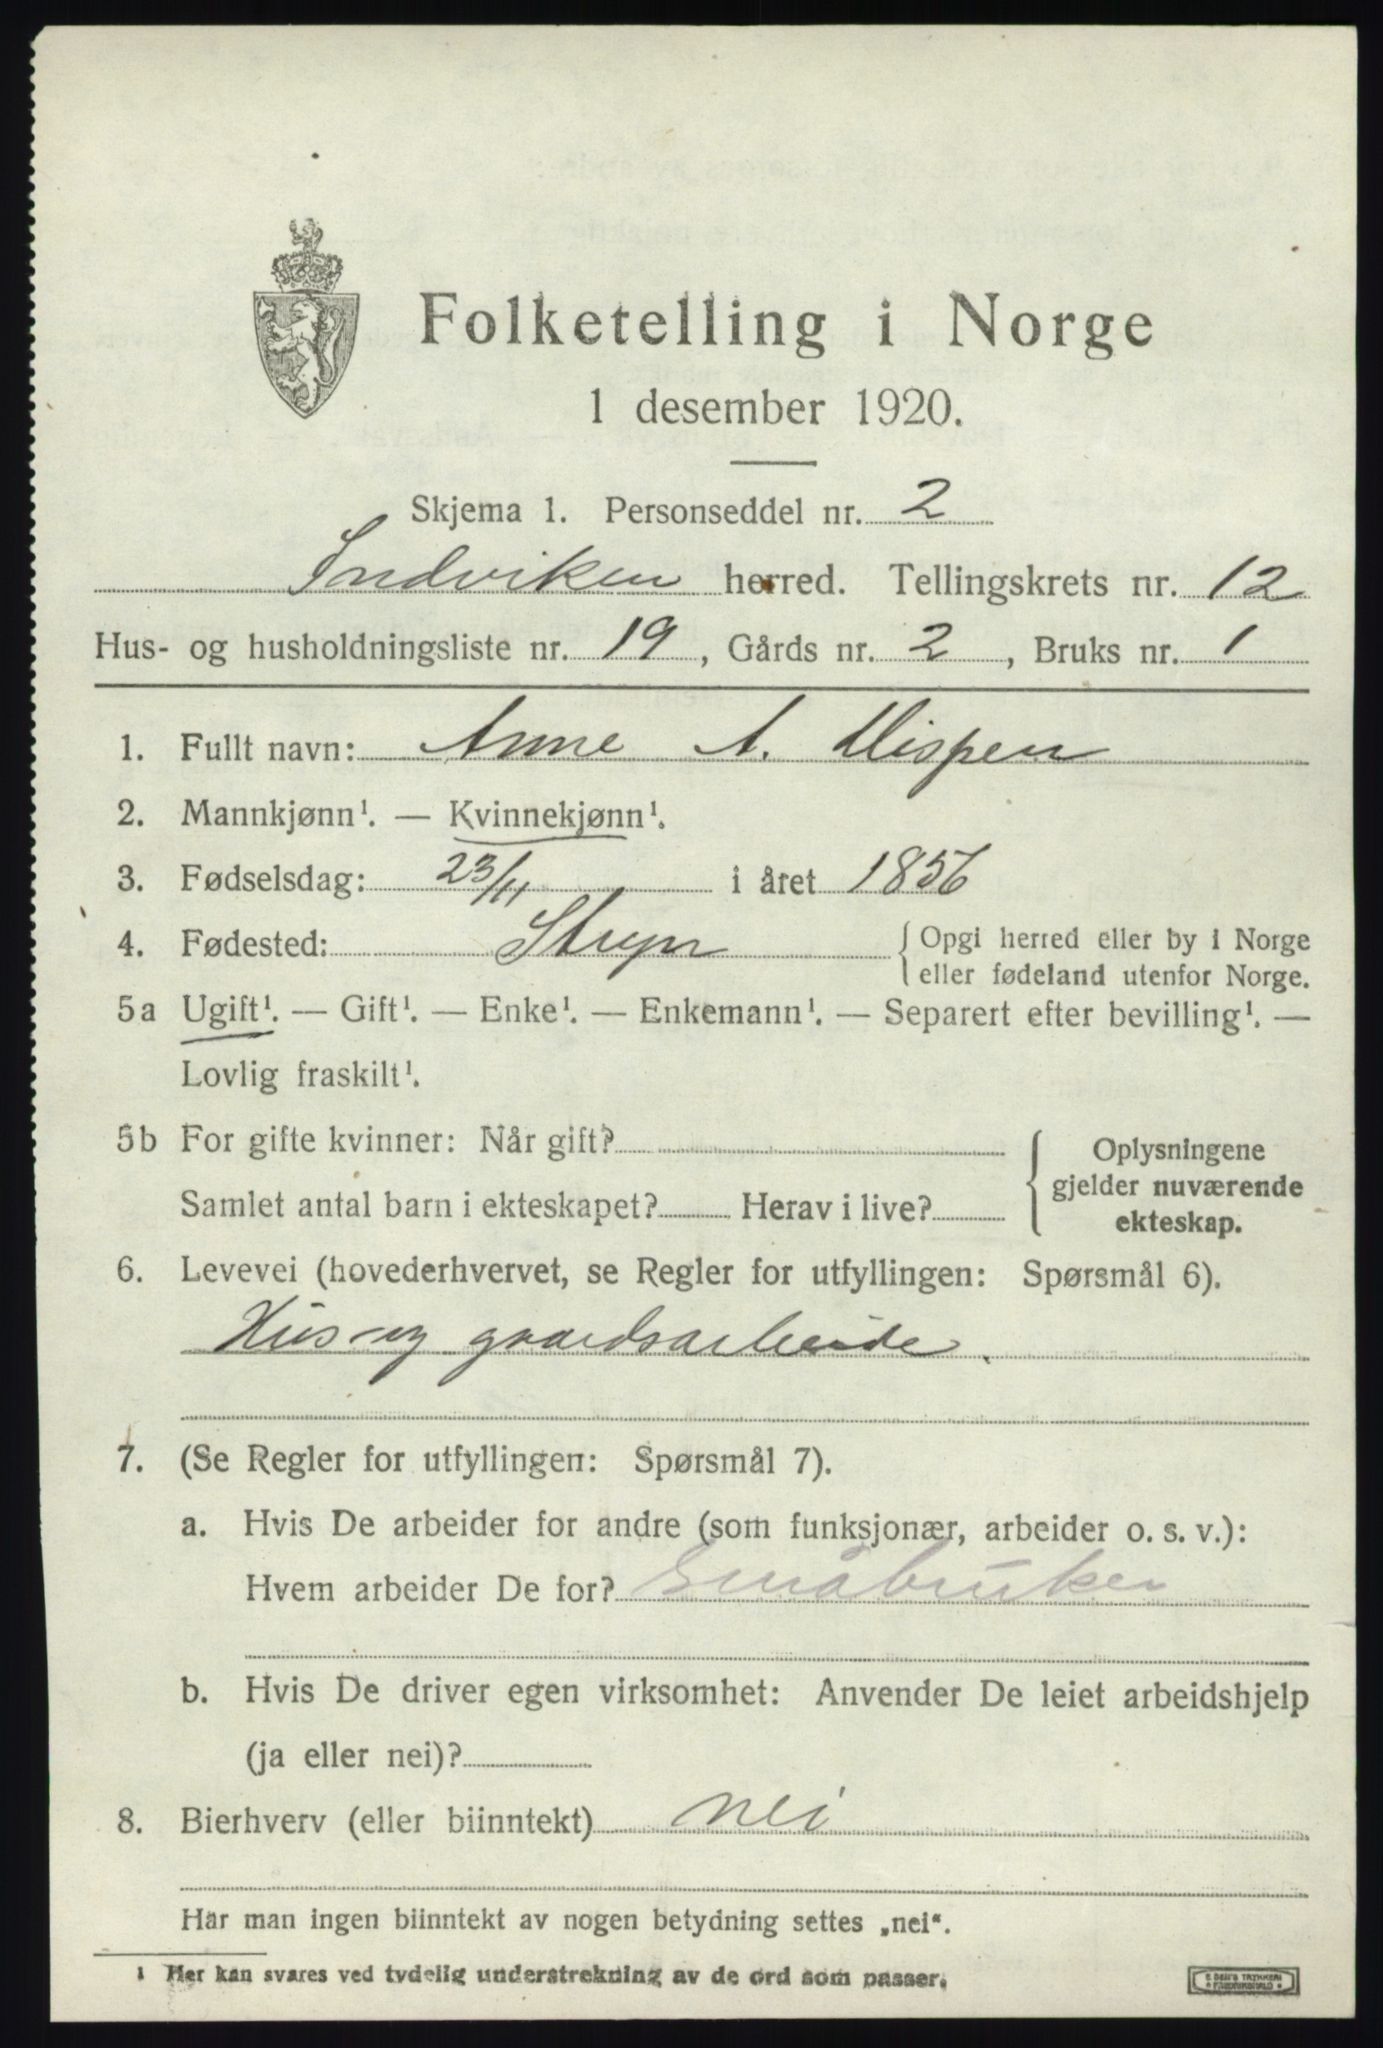 Folketelling i Norge
1 desember 1920.
Skjema 1. Personseddel nr. 2
Indviken herred. Tellingskrets nr. 12
Hus- og husholdningsliste nr. 19, Gårds nr. 2, Bruks nr. 1
1. Fullt navn: Anne A. Mispen
2. Mannkjønn¹. — Kvinnekjønn¹.
3. Fødselsdag: 23/11 i året 1856
4. Fødested: Stryn { Opgi herred eller by i Norge
eller fødeland utenfor Norge.
5a Ugift¹. — Gift¹. — Enke¹. — Enkemann¹. — Separert efter bevilling¹. —
Lovlig fraskilt¹.
5b For gifte kvinner: Når gift? { Oplysningene
gjelder nuværende
Samlet antal barn i ekteskapet? Herav i live? ekteskap.
6. Levevei (hovederhvervet, se Regler for utfyllingen: Spørsmål 6).
Hus-og gaardsarbeide.
7. (Se Regler for utfyllingen: Spørsmål 7).
a. Hvis De arbeider for andre (som funksjonær, arbeider o. s. v.):
Hvem arbeider De for? Småbruker
b. Hvis De driver egen virksomhet: Anvender De leiet arbeidshjelp
(ja eller nei)?
8. Bierhverv (eller biinntekt) nei
Har man ingen biinntekt av nogen betydning settes „nei“.
¹ Her kan svares ved tydelig understrekning av de ord som passer.